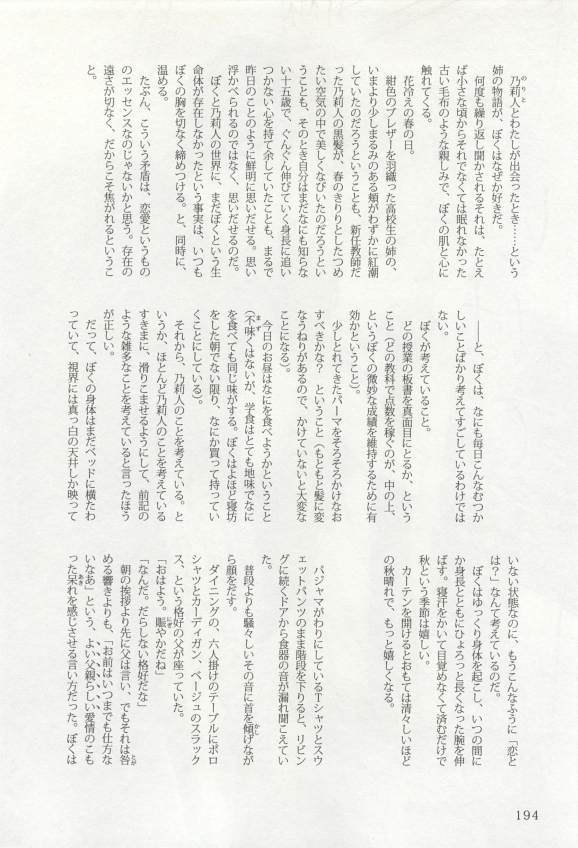 「乃莉人とわたしが出会ったとき……という
姉の物語が、ぼくはなぜか好きだ。
何度も繰り返し聞かされるそれは、たとえ
ば小さな頃からそれでなくては眠れなかった
古い毛布のような親しみで、ぼくの肌と心に
触れてくる。
花冷えの春の日。
紺色のブレザーを羽織った高校生の姉の、
いまより少しまるみのある頬がわずかに紅潮
していたのだろうということも、新任教師だ
った乃莉人の黒髪が、春のきりりとしたつめ
たい空気の中で美しくなびいたのだろうとい
うことも、そのとき自分はまだなにも知らな
い十五歳で、ぐんぐん伸びていく身長に追い
つかない心を持て余していたことも、まるで
昨日のことのように鮮明に思いだせる。思い
浮かべられるのではなく、思いだせるのだ。
ぼくと乃莉人の世界に、まだぼくという生
命体が存在しなかったという事実は、いつも
ぼくの胸を切なく締めつける。と、同時に、
温める。
たぶん、こういう矛盾は、恋愛というもの
のエッセンスなのじゃないかと思う。存在の
遠さが切なく、だからこそ焦がれるというこ
と。
――と、ぼくは、なにも毎日こんなむつか
しいことばかり考えてすごしているわけでは
ない。
ぼくが考えていること。
どの授業の板書を真面目にとるか、という
こと（どの教科で点数を稼ぐのが、中の上、
というぼくの微妙な成績を維持するために有
効かということ）。
少しとれてきたパーマをそろそろかけなお
すべきかな？　ということ（もともと髪に変
なうねりがあるので、かけていないと大変な
ことになる）。
今日のお昼はなにを食べようかということ
（不味くはないが、学食はとても地味でなに
を食べても同じ味がする。ぼくはよほど寝坊
をした朝でない限り、なにか買って持ってい
くことにしている）。
それから、乃莉人のことを考えている。と
いうか、ほとんど乃莉人のことを考えている
すきまに、滑りこませるようにして、前記の
ような雑多なことを考えていると言ったほう
が正しい。
だって、ぼくの身体はまだベッドに横たわ
っていて、視界には真っ白の天井しか映って
いない状態なのに、もうこんなふうに「恋と
は？」なんて考えているのだ。
ぼくはゆっくり身体を起こし、いつの間に
か身長とともにひょろっと長くなった腕を伸
ばす。寝汗をかいて目覚めなくて済むだけで
秋という季節は嬉しい。
カーテンを開けるとおもては清々しいほど
の秋晴れで、もっと嬉しくなる。
パジャマがわりにしているTシャツとスウ
ェットパンツのまま階段を下りると、リビン
グに続くドアから食器の音が漏れ聞こえてい
た。
普段よりも騒々しいその音に首を傾げなが
ら顔をだす。
ダイニングの、六人掛けのテーブルにポロ
シャツとカーディガン、ベージュのスラック
ス、という格好の父が座っていた。
「おはよう。賑やかだね」
「なんだ。だらしない格好だな」
朝の挨拶より先に父は言い、でもそれは咎
める響きよりも、「お前はいつまでも仕方な
いなあ」という、よい父親らしい愛情のこも
った呆れを感じさせる言い方だった。ぼくは
194